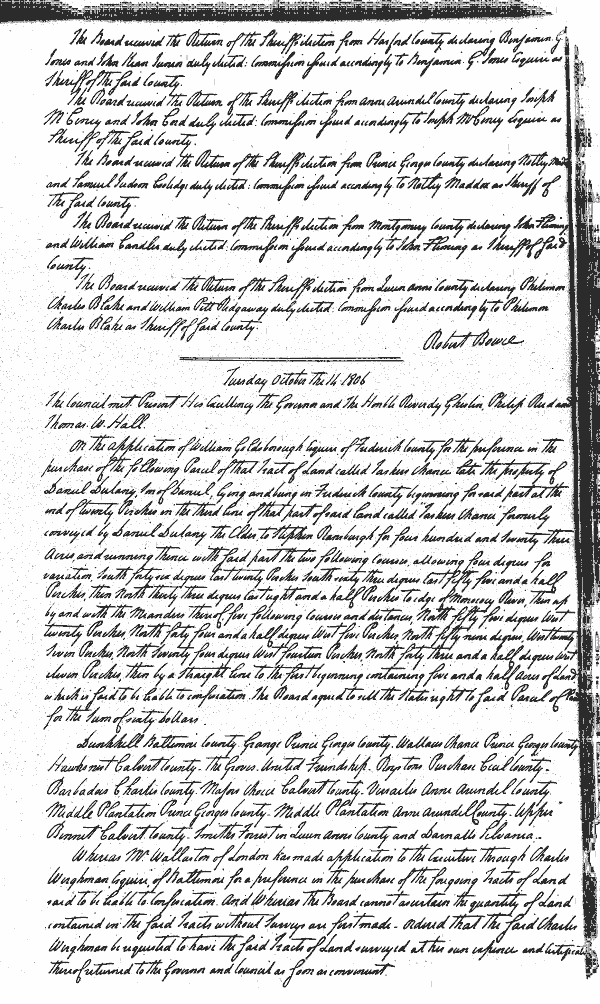 The Board received the Return of the Sheriffs election from Harford County declaring Benjamin G
Jones and John Kean Junior duly elected: Commission issued accordingly to Benjamin G. Jones Esquire as
Sheriff of the said County.
The Board received the Return of the Sheriffs election from Anne Arundel County declaring Joseph
McCeney and John Cord duly elected: Commission issued accordingly to Joseph McCeney Esquire as
Sheriff of the said County.
The Board received the Return of the Sheriffs election from Prince Georges County declaring Notley
and Samuel Judson Coolidge duly elected: Commission issued accordingly to Notley Maddox as Sheriff of
the said County.
The Board received the Return of the Sheriffs election from Montgomery County declaring John Fleming
and William Candler duly elected: Commission issued accordingly to John Fleming as Sheriff of said
County.
The Board received the Return of the Sheriffs election from Queen Anns County declaring Philemon
Charles Blake and William Pitt Ridgaway duly elected: Commission issued accordingly to Philemon
Charles Blake as Sheriff of said County.
Robert Bowie
Tuesday October the 14 1806
The Council met. Present His Excellency the Governor and The Honble Reverdy Ghiselin, Philip Reed and
Thomas W. Hall.
On the application of William Goldsborough Esquire of Frederick County for the preference in the
purchase of the following Parcel of that Tract of Land called Taskers Chance late the property of
Daniel Dulany, Son of Daniel, lying and being in Frederick County beginning for said part at the
end of twenty Perches in the third line of that part of said land called Taskers Chance formerly
conveyed by Daniel Dulany the Elder to Stephen Ramsburgh for four hundred and seventy three
Acres and running thence with said part the two following courses, allowing four degrees for
variation, South forty six degrees East twenty Perches South sixty three degrees East fifty five and a half
Perches, then North thirty three degrees East eight and a half Perches to edge of Monocacy River, then up
by and with the Meanders thereof five following courses and distances North fifty five degrees West
twenty Perches, North forty four and a half degrees West five Perches North fifty nine degrees, West twenty
seven Perches, North seventy four degrees West fourteen Perches, North forty three and a half degrees West
eleven Perches, then by a straight line to the first beginning containing five and a half Acres of Land
which is said to be liable to confiscation. The Board agreed to sell the States right to said Parcel of
for the Sum of sixty dollars.
Dunkhill Baltimore County. Grange Prince Georges County. Wallace Chance Prince Georges County
Hawks nest Calvert County. The Groves. United Friendship. Roystons Purchase Cecil County.
Barbadoes Charles County. Majors Choice Calvert County. Versailes Anne Arundel County.
Middle Plantation Prince Georges County. Middle Plantation Anne Arundel County. Upper
Bennet Calvert County. Smiths Forrest in Queen Anns County and Darnalls Silvania.
Whereas Mr Wallaston of London has made application to the Executive through Charles
Weighman Esquire of Baltimore for a preference in the purchase of the foregoing Tracts of Land
said to be liable to Confiscation. And Whereas the Board cannot ascertain the quantity of Land
contained in the said Tracts without Surveys are first made. Ordered that the said Charles
Weighman be requested to have the said Tracts of Land surveyed at his own expence and Certificates
thereof returned to the Governor and Council as soon as convenient.